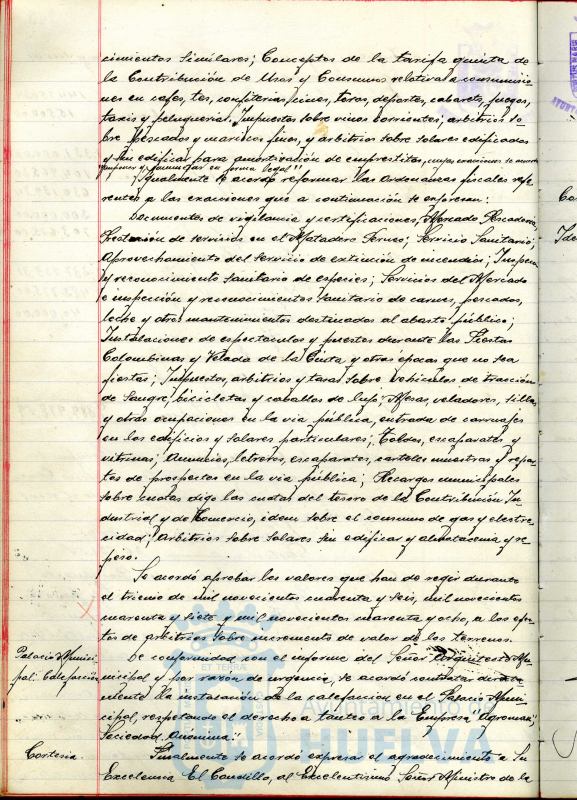 cimientos similares; Conceptos de la tarifa quinta de
la Contribución de Usos y Consumos relativa a consumisio-
nes en cafes, tes, confiterias, cines, toros, deportes, cabarets, juegos,
taxis y peluquerias. Impuestos sobre vinos corrientes; arbitrios so-
bre Pescados y mariscos finos, y arbitrios sobre solares edificados
y sin edificar para amortización de emprestitos, cuyas exacciones se
en forma legal.
Igualmente se acordó reformar las Ordenanzas fiscales refe-
rentes a las exacciones que a continuación se expresan:
Documentos de vigilancia y certificaciones, Mercado Pescaderia,
Prestación de servicios en el Matadero; Servicio Sanitario;
Aprovechamiento del servicio de extinción de incendios; Inspección
y reconocimiento sanitario de especies; Servicios del Mercado
e inspección y reconocimientos sanitario de carnes, pescados,
leche y otros mantenimientos destinados al abasto público;
Instalaciones de espectaculos y puestos durante las Fiestas
Colombinas y Velada de la Cinta, y otras epocas que no sea
fiestas; Impuestos, arbitrios y tasas sobre vehiculos de tracción
de Sangre, bicicletas y caballos de lujo; Mesas, veladores, sillas
y otras ocupaciones en la via pública, entrada de carruajes
en los edificios y solares particulares; Toldos, escaparates y
vitrinas; Anuncios, letreros, escaparates, carteles muestras y repar-
tos de prospectos en la via pública; Recargos municipales
sobre cuotas digo las cuotas del tesoro de la Contribución In-
dustrial y de Comercio, idem sobre el consumo de gas y electri-
cidad; Arbitrios sobre Solares sin edificar y
peso.
Se acordó aprobar los valores que han de regir durante
el trienio de mil novecientos cuarenta y seis, mil novecientos
cuarenta y siete y mil novecientos cuarenta y ocho, a los efec-
tos de arbitrios sobre incremento de valor de los terrenos.
Palacio Munici-
pal: Calefacción
De conformidad con el informe del Señor Arquitecto Mu-
nicipal y por razon de urgencia, se acordó contratar
la instalación de la calefaccion en el Palacio Muni-
cipal, respetando el derecho a tanteo a la Empresa "Agroman,
Sociedad Anónima".
Cortesia
Finalmente se acordó expresar el agradecimiento a Su
Excelencia El Caudillo, al Excelentisimo Señor Ministro de la
Ayuntamiento de
HUELVA